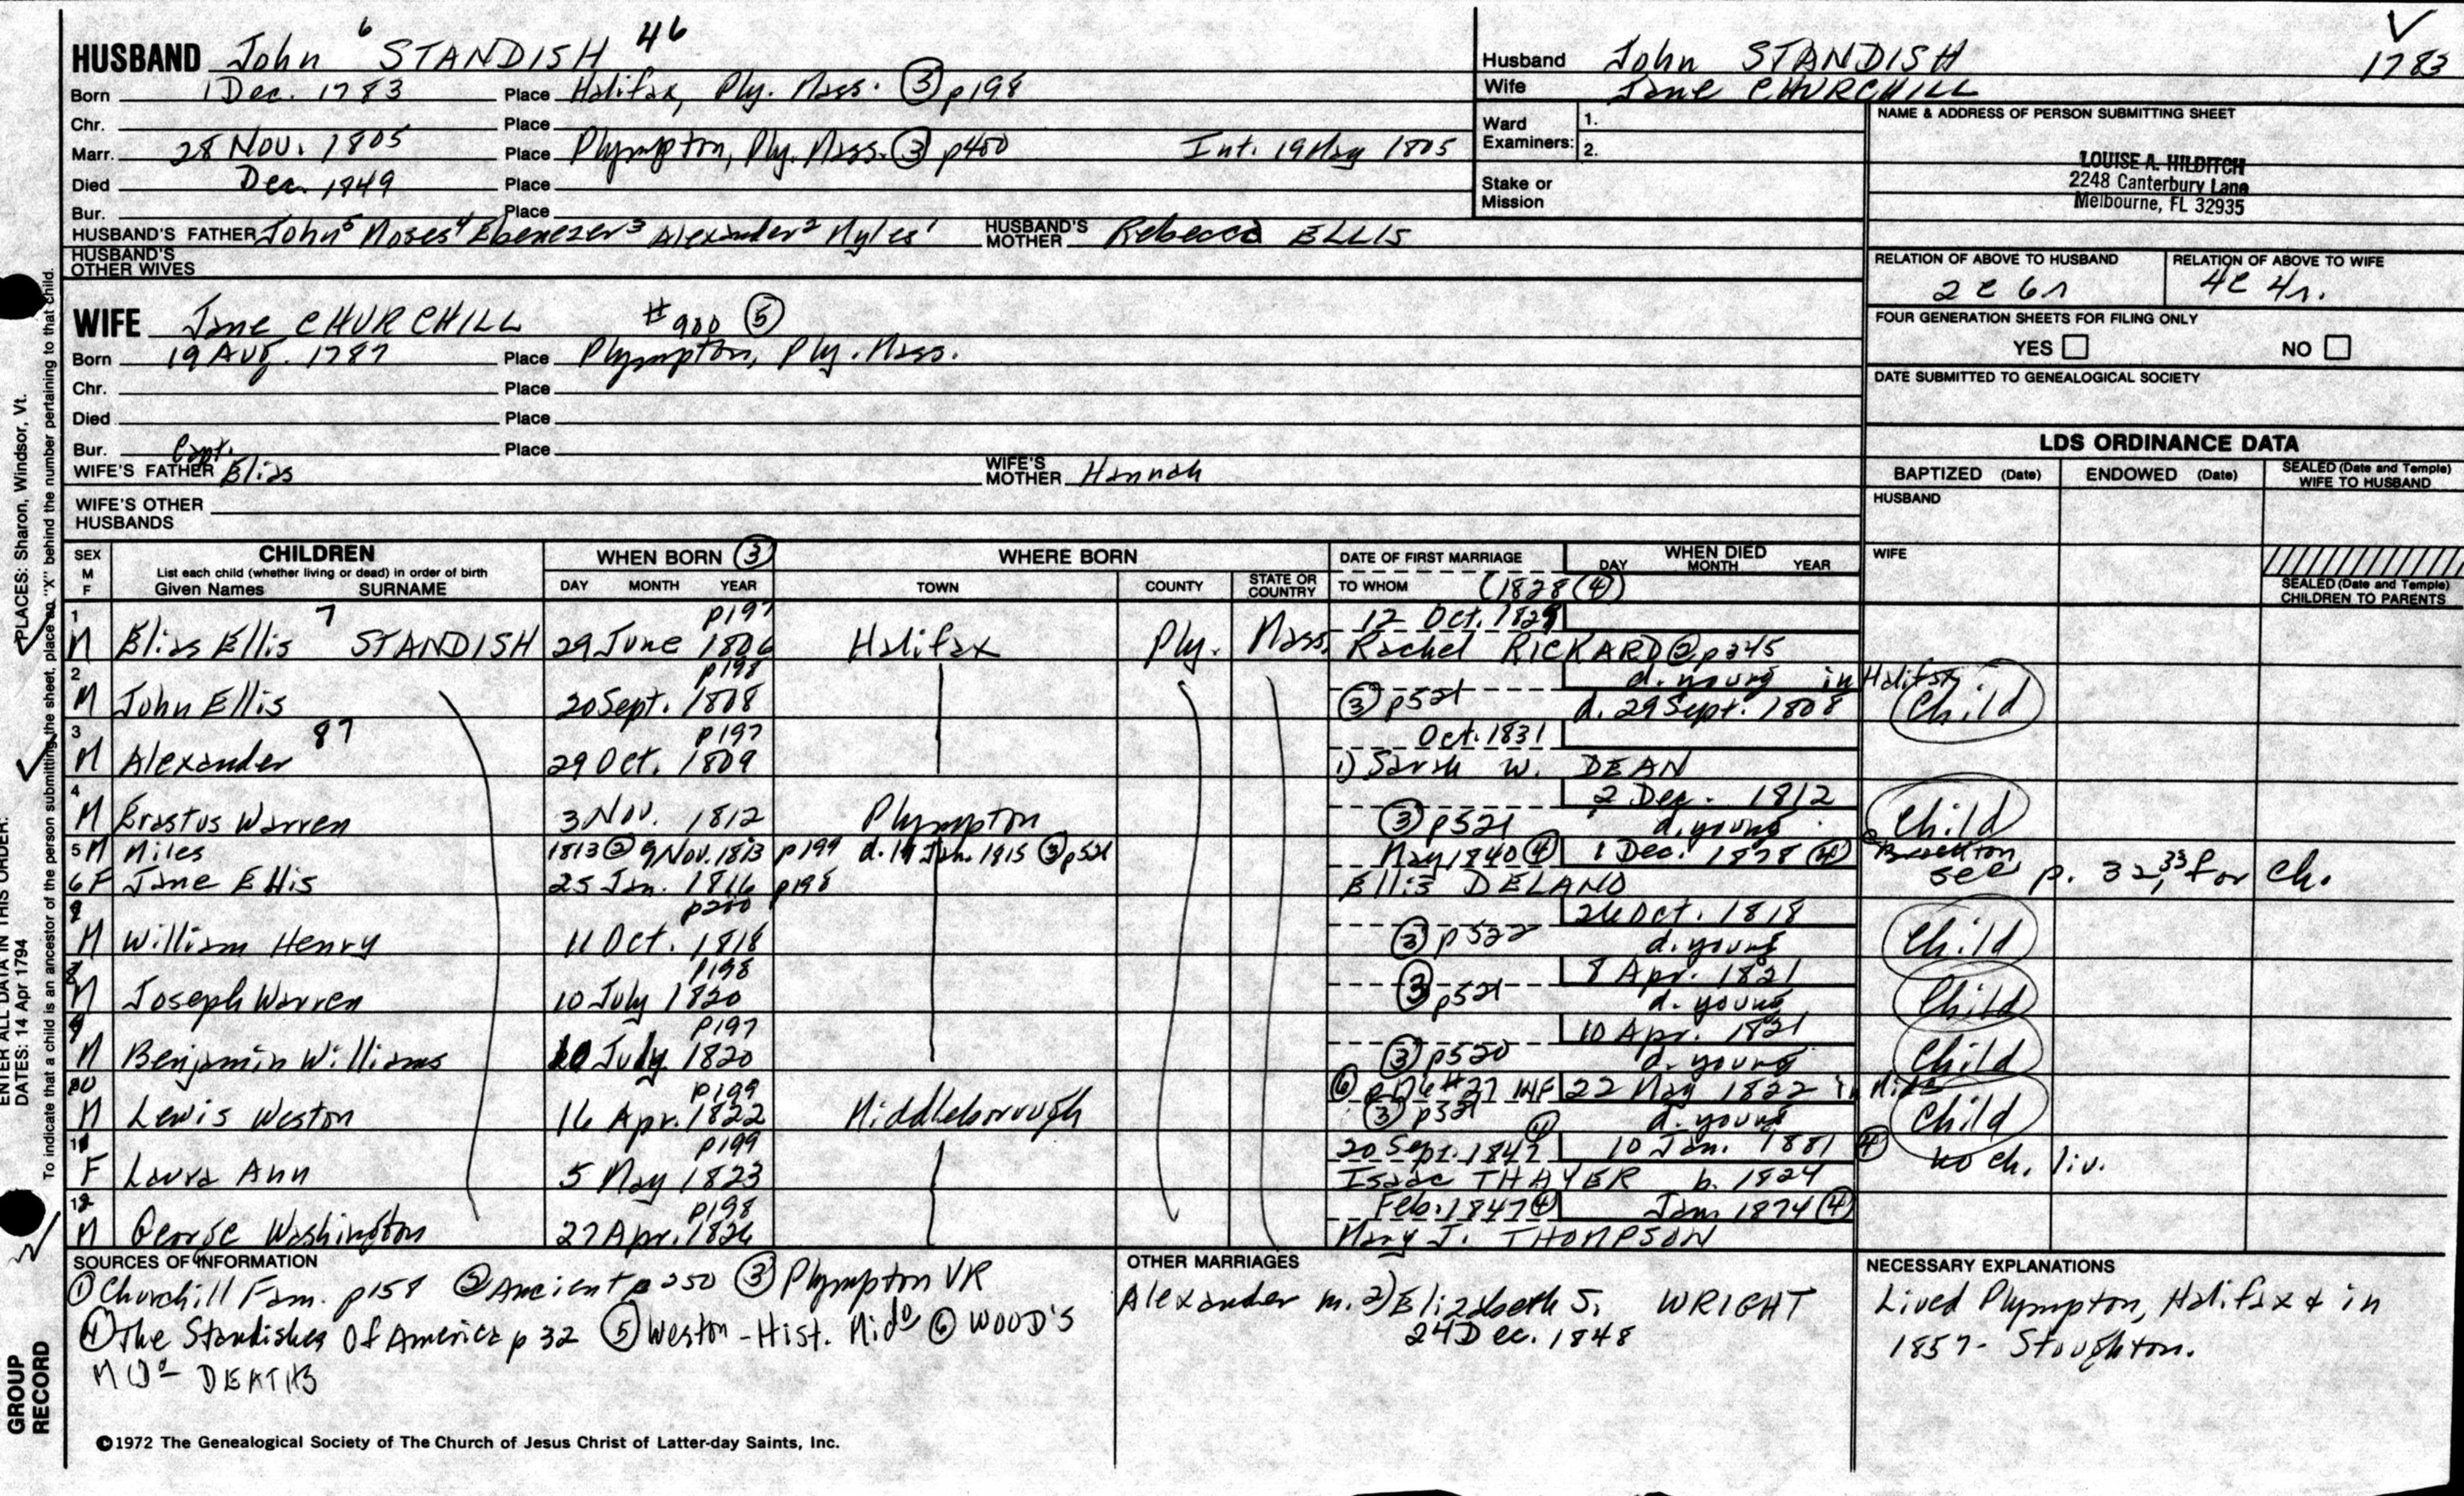 HUSBAND John 6 STANDISH 46
Born 1 Dec. 1783 Place Halifax, Ply. Mass. ③ p198
Chr. Place
Marr. 28 Nov. 1805 Place Plympton, Ply. Mass. ③ p400 Int. 19 May 1805
Died Dec. 1849 Place
Bur. Place
HUSBAND'S FATHER John5 Moses4 Ebenezer3 Alexander2 Myles1 HUSBAND'S MOTHER Rebecca ELLIS
HUSBAND'S OTHER WIVES
WIFE Jane CHURCHILL #900 ⑤
Born 19 Aug. 1787 Place Plympton, Ply. Mass.
Chr. Place
Died Place
Bur. Place
WIFE'S FATHER Capt. Elias WIFE'S MOTHER Hannah
WIFE'S OTHER HUSBANDS
Husband John STANDISH 1783
Wife Jane CHURCHILL
Ward Examiners: 1.
2.
Stake or Mission
NAME & ADDRESS OF PERSON SUBMITTING SHEET
LOUISE A. HILDITCH
2248 Canterbury Lane
Melbourne, FL 32935
RELATION OF ABOVE TO HUSBAND RELATION OF ABOVE TO WIFE
2c 6r 4c 4r.
FOUR GENERATION SHEETS FOR FILING ONLY
YES NO
DATE SUBMITTED TO GENEALOGICAL SOCIETY
LDS ORDINANCE DATA
BAPTIZED (Date) ENDOWED (Date) SEALED (Date and Temple) WIFE TO HUSBAND
HUSBAND
WIFE
SEALED (Date and Temple) CHILDREN TO PARENTS
SEX M F CHILDREN WHEN BORN ③ WHERE BORN DATE OF FIRST MARRIAGE WHEN DIED
List each child (whether living or dead) in order of birth
Given Names SURNAME DAY MONTH YEAR TOWN COUNTY STATE OR COUNTRY TO WHOM DAY MONTH YEAR
(1828 ④)
1 7 p197 12 Oct. 1829
M Elias Ellis STANDISH 29 June 1806 Halifax Ply. Mass. Rachel RICKARD ② p245
2 p198 d. young in Halifax
M John Ellis 20 Sept. 1808 ③ p521 d. 29 Sept. 1808 Child
3 87 p197 Oct. 1831
M Alexander 29 Oct. 1809 1) Sarah W. DEAN
4 2 Dec. 1812
M Erastus Warren 3 Nov. 1812 Plympton ③ p521 d. young Child
5 M Miles 1813 ② 9 Nov. 1813 p199 d. 19 Jan. 1815 ③ p521 May 1840 ④ 1 Dec. 1878 ④ Brockton
6 F Jane Ellis 25 Jan. 1816 p198 Ellis DELANO see p. 32, 33 for ch.
7 p200 26 Oct. 1818
M William Henry 11 Oct. 1818 ③ p522 d. young Child
8 p198 8 Apr. 1821
M Joseph Warren 10 July 1820 ③ p521 d. young Child
9 p197 10 Apr. 1821
M Benjamin Williams 10 July 1820 ③ p520 d. young Child
10 p199 ⑥ #27 22 May 1822 in Mido
M Lewis Weston 16 Apr. 1822 Middleborough ③ p521 d. young Child
11 p199 20 Sept. 1847 ④ 10 Jan. 1881 ④
F Laura Ann 5 May 1823 Isaac THAYER b. 1824 no ch. liv.
12 p198 Feb. 1847 ④ Jan 1874 ④
M George Washington 27 Apr. 1826 Mary J. THOMPSON
SOURCES OF INFORMATION
① Churchill Fam. p158 ② Ancient p 250 ③ Plympton VR
④ The Standishes Of America p 32 ⑤ Weston - Hist. Mido ⑥ WOOD'S
MIDo DEATHS
OTHER MARRIAGES
Alexander m. 2) Elizabeth S. WRIGHT
24 Dec. 1848
NECESSARY EXPLANATIONS
Lived Plympton, Halifax & in
1857 - Stoughton.
©1972 The Genealogical Society of The Church of Jesus Christ of Latter-day Saints, Inc.
GROUP RECORD
ENTER ALL DATA IN THIS ORDER:
DATES: 14 Apr 1794
PLACES: Sharon, Windsor, Vt.
To indicate that a child is an ancestor of the person submitting the sheet, place an "X" behind the number pertaining to that child.